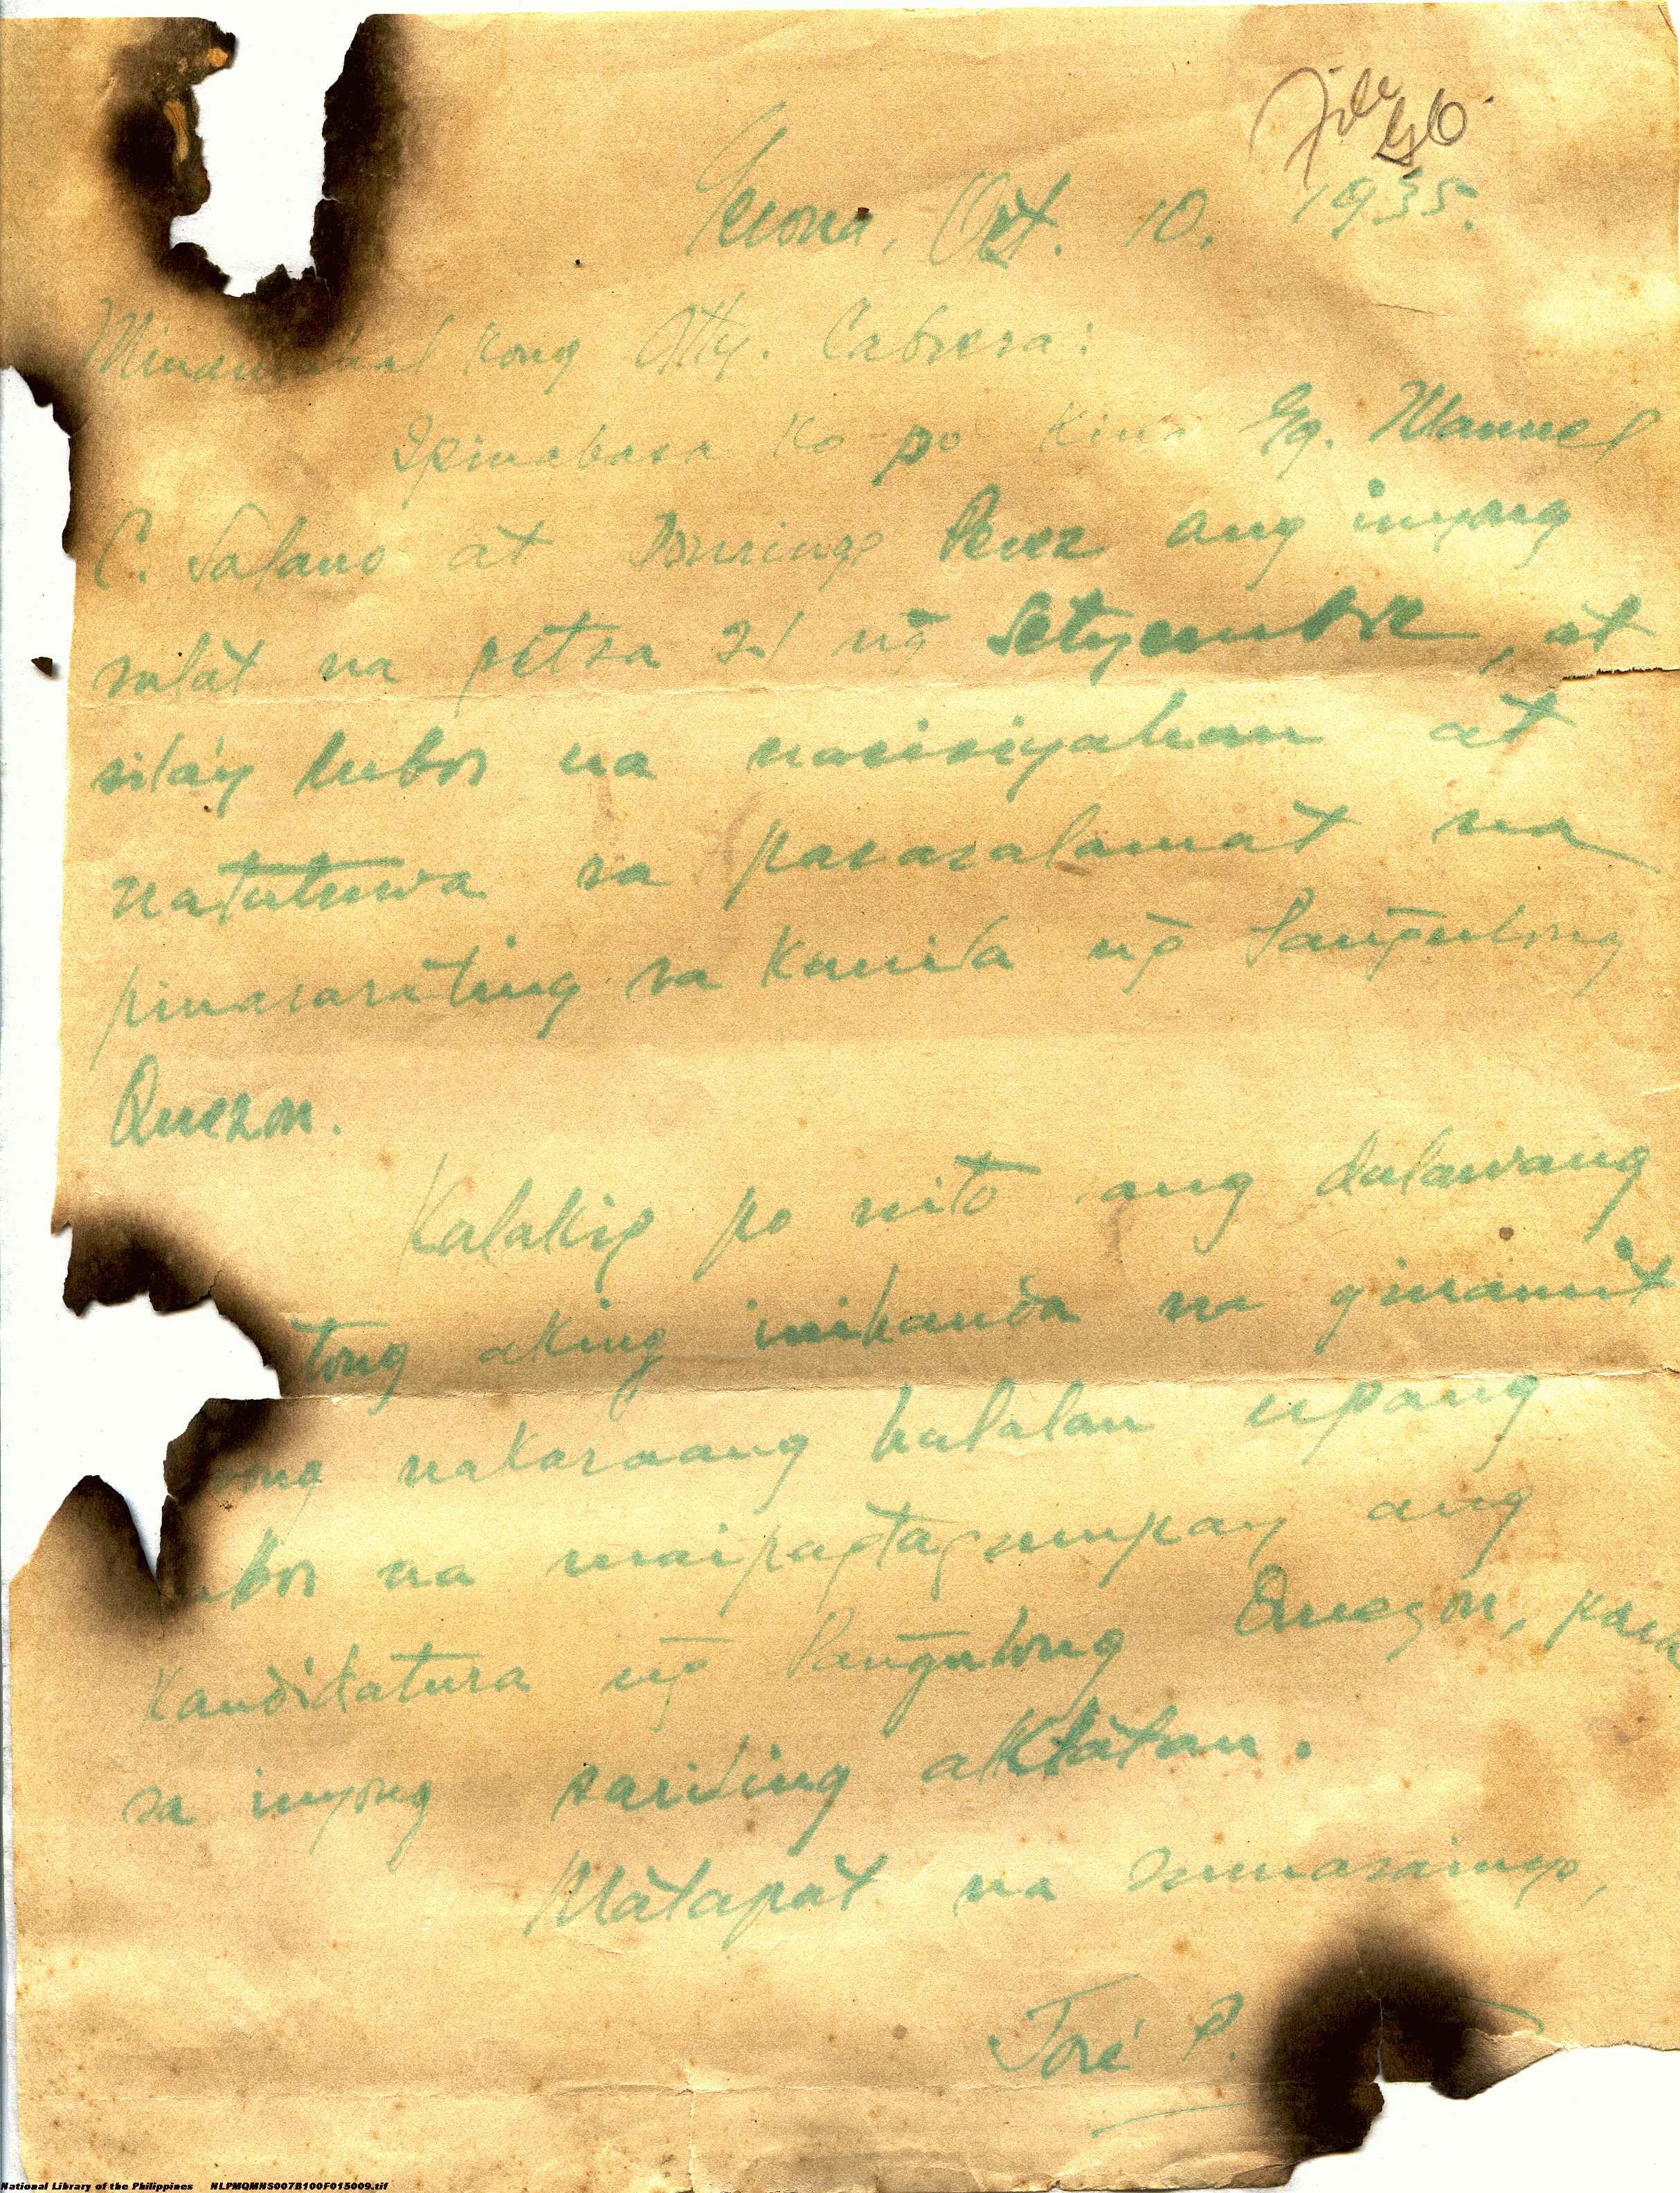 File
Gerona, Oct. 10, 1935.
Minamahal kong Atty. Cabrera:
Ipinabasa ko po kina Gg. Manuel
C. Solano at Domingo Perez ang inyong
sulat na petsa 21 ng̃ Setyembre, at
sila'y lubos na nasisiyahan at
natutuwa sa pasasalamat na
pinasasating sa kanila ng̃ Pang̃ulong
Quezon.
Kalakip po nito ang dalawang
tong aking inihanda na ginamit
oong nakaraang halalan upang
ubos na maipagtagumpay ang
kandidatura ng̃ Pang̃ulong Quezon, para
sa inyong sariling aklatan.
Matapat na sumasainyo,
José P.
National Library of the Philippines NLPMQMNS007B100F015009.tif